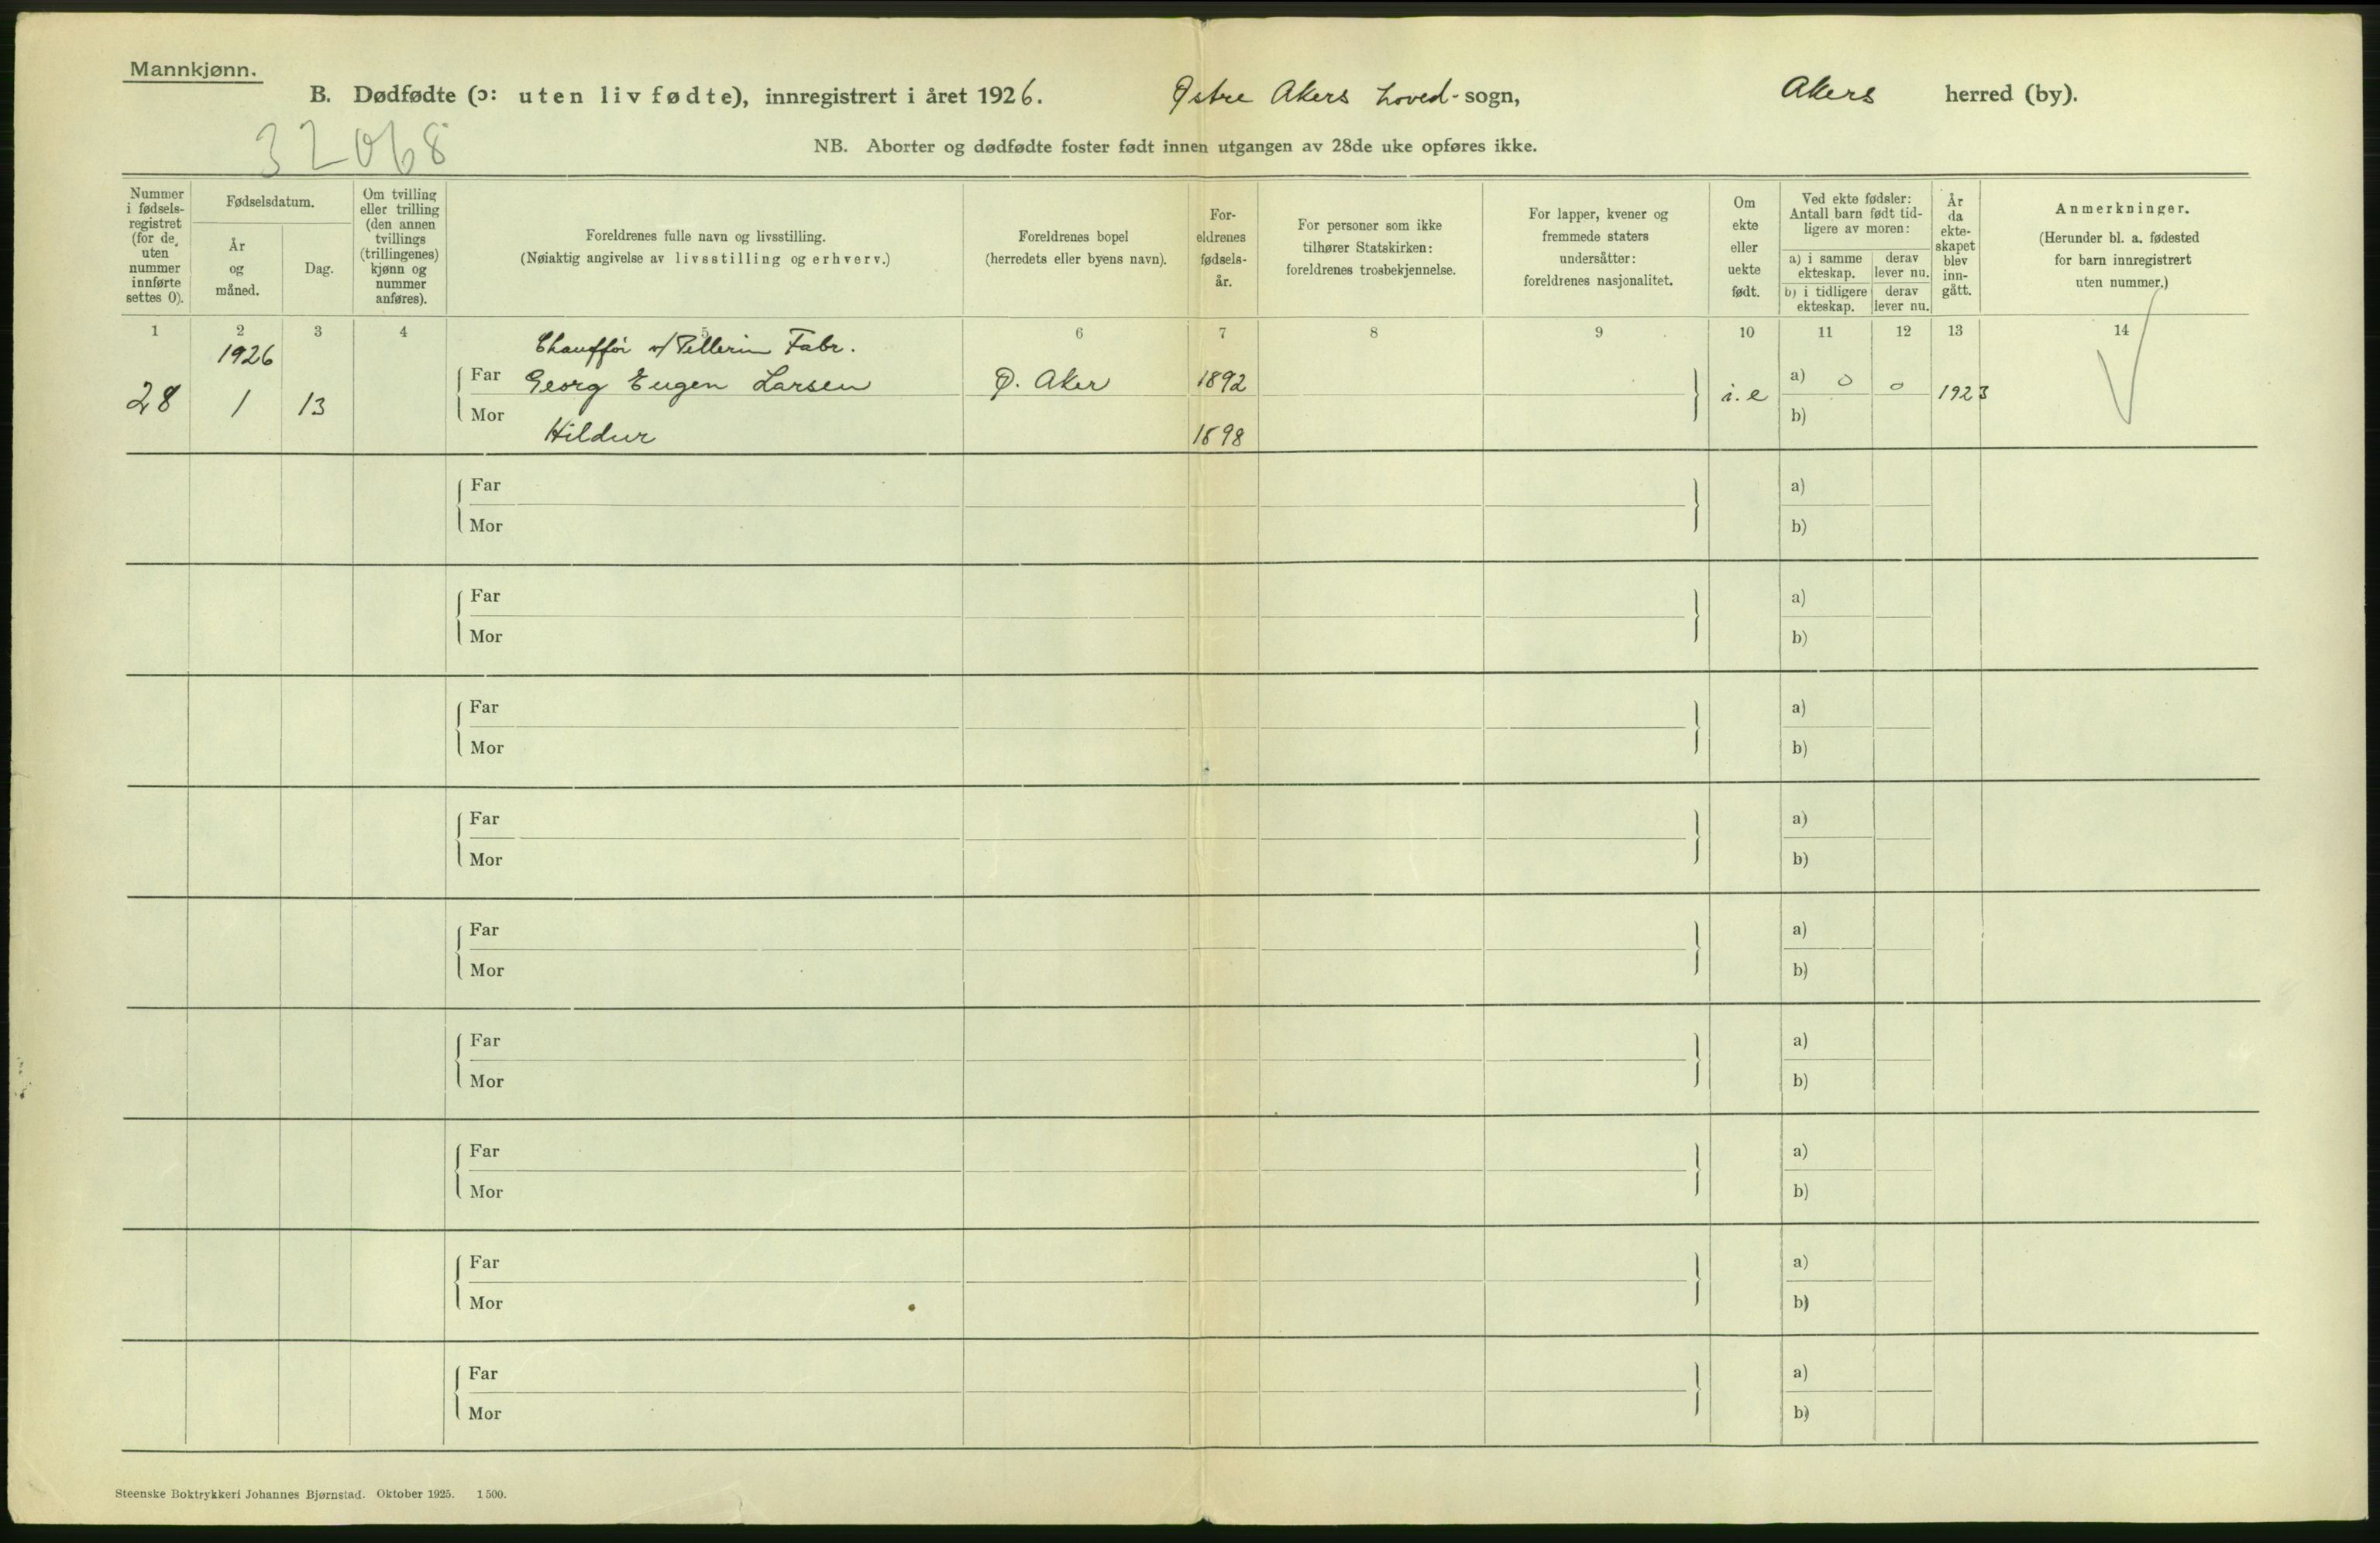 Mannkjønn.
B. Dødfødte (ɔ: uten liv fødte), innregistrert i året 1926. Østre Akers hoved-sogn, Akers herred (by).
32068
NB. Aborter og dødfødte foster født innen utgangen av 28de uke opføres ikke.
Nummer i fødsels-registret (for de uten nummer innførte settes 0).
Fødselsdatum.
År og måned.
Dag.
Om tvilling eller trilling (den annen tvillings (trillingenes) kjønn og nummer anføres).
Foreldrenes fulle navn og livsstilling.
(Nøiaktig angivelse av livsstilling og erhverv.)
Foreldrenes bopel
(herredets eller byens navn).
For-eldrenes fødsels-år.
For personer som ikke tilhører Statskirken: foreldrenes trosbekjennelse.
For lapper, kvener og fremmede staters undersåtter: foreldrenes nasjonalitet.
Om ekte eller uekte født.
Ved ekte fødsler: Antall barn født tid-ligere av moren:
a) i samme ekteskap.
derav lever nu.
b) i tidligere ekteskap.
derav lever nu.
År da ekte-skapet blev inn-gått.
Anmerkninger.
(Herunder bl. a. fødested for barn innregistrert uten nummer.)
1 2 3 4 5 6 7 8 9 10 11 12 13 14
1926
Chauffór v/ Pellerin Fabr.
28 1 13 Far Georg Eugen Larsen Ø. Aker 1892 i.e a) 0 0 1923
Mor Hildur 1898 b)
Far a)
Mor b)
Far a)
Mor b)
Far a)
Mor b)
Far a)
Mor b)
Far a)
Mor b)
Far a)
Mor b)
Far a)
Mor b)
Far a)
Mor b)
Far a)
Mor b)
Steenske Boktrykkeri Johannes Bjørnstad. Oktober 1925. 1500.